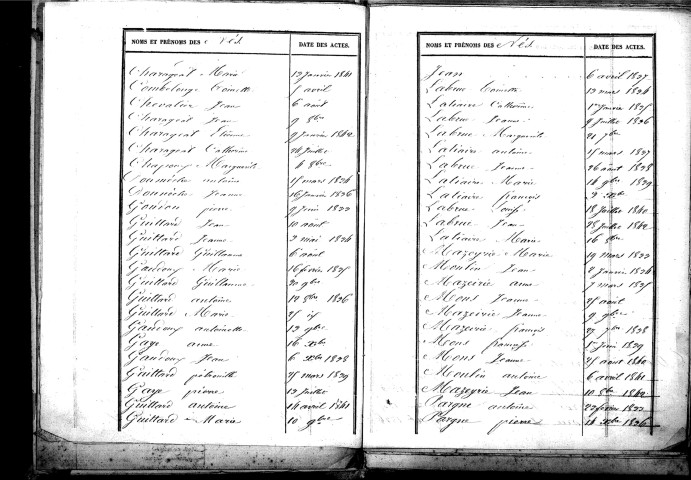 NOMS ET PRÉNOMS DES Nés. DATE DES ACTES.
Charageat Marie 12 Janvier 1841
Combelouge Toinette 5 avril
Chevalier Jean 6 août
Charageat Jean 9 8bre
Charageat Etienne 9 Janvier 1842
Charageat Catherine 28 Juillet
Marguerite 4 8bre
antoine 15 mars 1834
Jeanne 16 Janvier 1836
Goudou pierre 9 Juin 1833
Guittard Jean 10 août
Guittard Jeanne 2 mai 1834
Guittard Guillaume 6 août
Gandoux Marie 16 février 1835
Guittard Guillaume 20 9bre
Guittard antoine 12 8bre 1836
Guittard Marie 25
Gandoux antoinette 12 9bre
Gaye anne 16 Xbre
Gandoux Jean 6 Xbre 1838
Guittard pétronille 25 mars 1839
Gaye pierre 12 Juillet
Guittard antoine 14 avril 1841
Guittard Marie 10 9bre
NOMS ET PRÉNOMS DES Nés. DATE DES ACTES.
Jean 6 avril 1837
Labrue Toinette 12 mars 1834
Latiaire Catherine Janvier 1835
Labrue Jeanne 9 Juillet 1836
Labrue Marguerite 21 7bre
Latiaire antoine 15 mars 1837
Labrue Jeanne 26 août 1838
Latiaire Marie 14 9bre 1839
Latiaire françois 2 Xbre
Labrue Louise 18 Juillet 1840
Labrue Jean 28 Juillet 1842
Latiaire Marie 16 8bre
Mazeyrie Marie 19 mars 1833
Moulin Jean 2 Janvier 1834
Mazeirie anne 7 mars 1835
Mons Jeanne 25 août
Mazeirie Jeanne 9 9bre
Mazeirie françois 27 7bre 1838
Mons françois 5 Juin 1839
Mons Jeanne 25 août 1840
Moulin antoine 6 avril 1841
Mazeyrie Jean 10 8bre 1842
Pargue antoine 22 février 1833
Pargue pierre 14 Xbre 1836